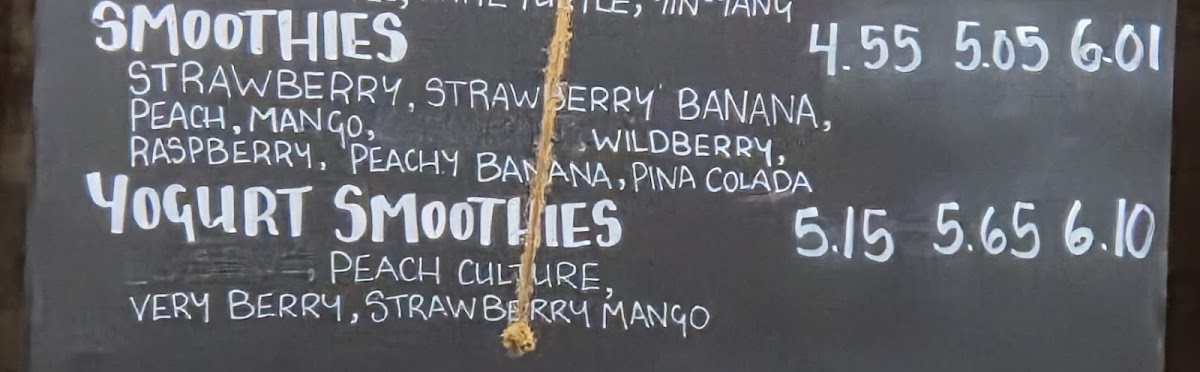 TLE, YIN-YANG
SMOOTHIES 4.55 5.05 6.01
STRAWBERRY, STRAWBERRY BANANA,
PEACH, MANGO, , WILDBERRY,
RASPBERRY, PEACHY BANANA, PINA COLADA
YOGURT SMOOTHIES 5.15 5.65 6.10
, PEACH CULTURE,
VERY BERRY, STRAWBERRY MANGO